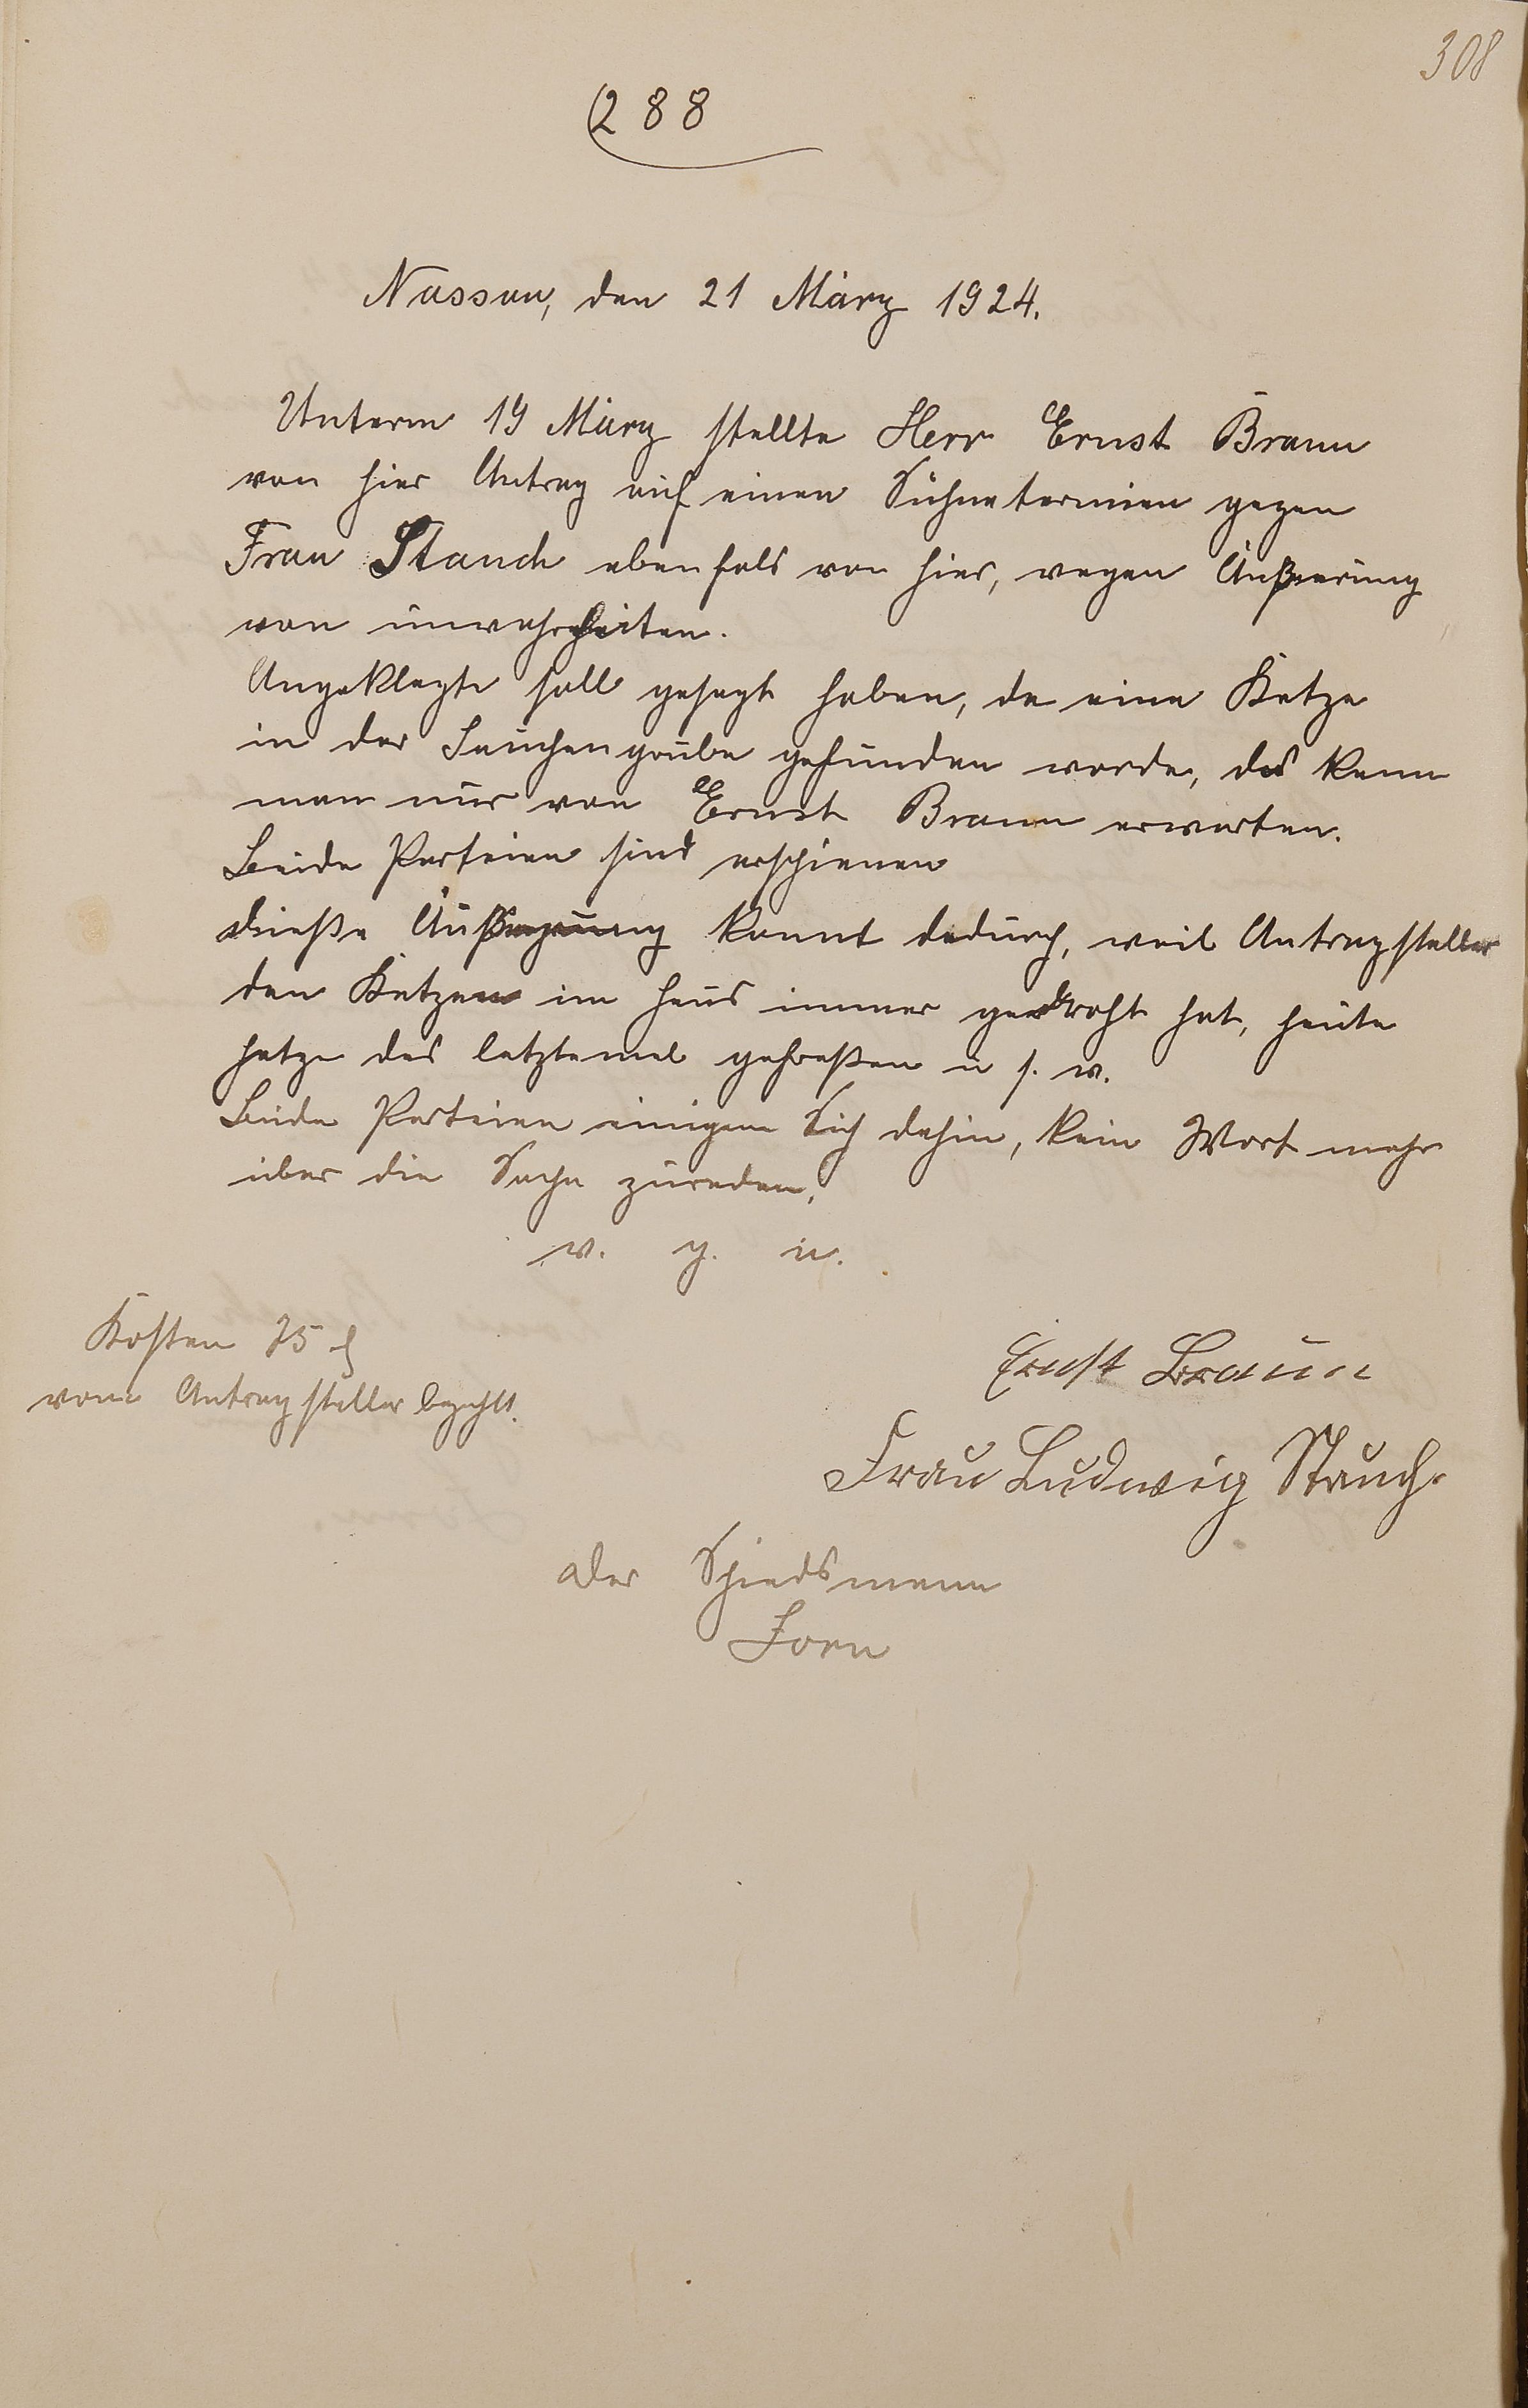 308
288
Nassau, den 21 März 1924.
Unterm 19 März stellte Herr Ernst Braun
von hier Antrag auf einen Sühnetermien gegen
Frau Stauch ebenfals von hier, wegen Äußerung
von unwahrheiten.
Angeklagte soll gesagt haben, da eine Katze
in der Jauchengrube gefunden worde, das kann
man nur von Ernst Braun erwarten.
Beide Parteien sind erschienen
dieße Äußerung kommt dadurch, weil Antragsteller
den Katzen im Haus immer gedroht hat, heute
hatze das letztemal gefreßen u s. w.
Beide Parteien einigen Sich dahin, kein Wort mehr
über die Sache zureden.
v. g. u.
Kosten 75 ₰
vom Antragsteller bezahlt.
Ernst Braun
Frau Ludwig Stauch.
Der Schiedsmann